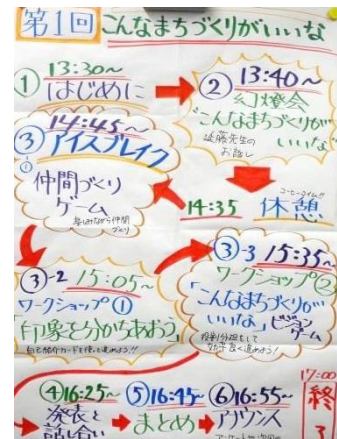 第1回 こんなまちづくりがいいな
① 13:30~
はじめに
② 13:40~
幻燈会
"こんなまちづくりが
いいな"
延藤先生の
お話し
コーヒータイム!!
14:35 休憩
14:45~
③-① アイスブレイク
仲間づくり
ゲーム
楽しみながら仲間
づくり
③-2 15:05~
ワークショップ①
「印象を分かちあおう」
自己紹介カードを使って進めよう!!
③-3 15:35~
ワークショップ②
「こんなまちづくりが
いいな」ビジョン
ゲーム
役割分担をして
進めよう!
④16:25~
発表と
話し合い
⑤16:45~
まとめ
⑥16:55~
アナウンス
17:00
終了